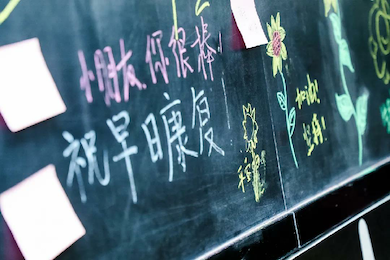 小朋友,你很棒,
祝早日康复
加油!